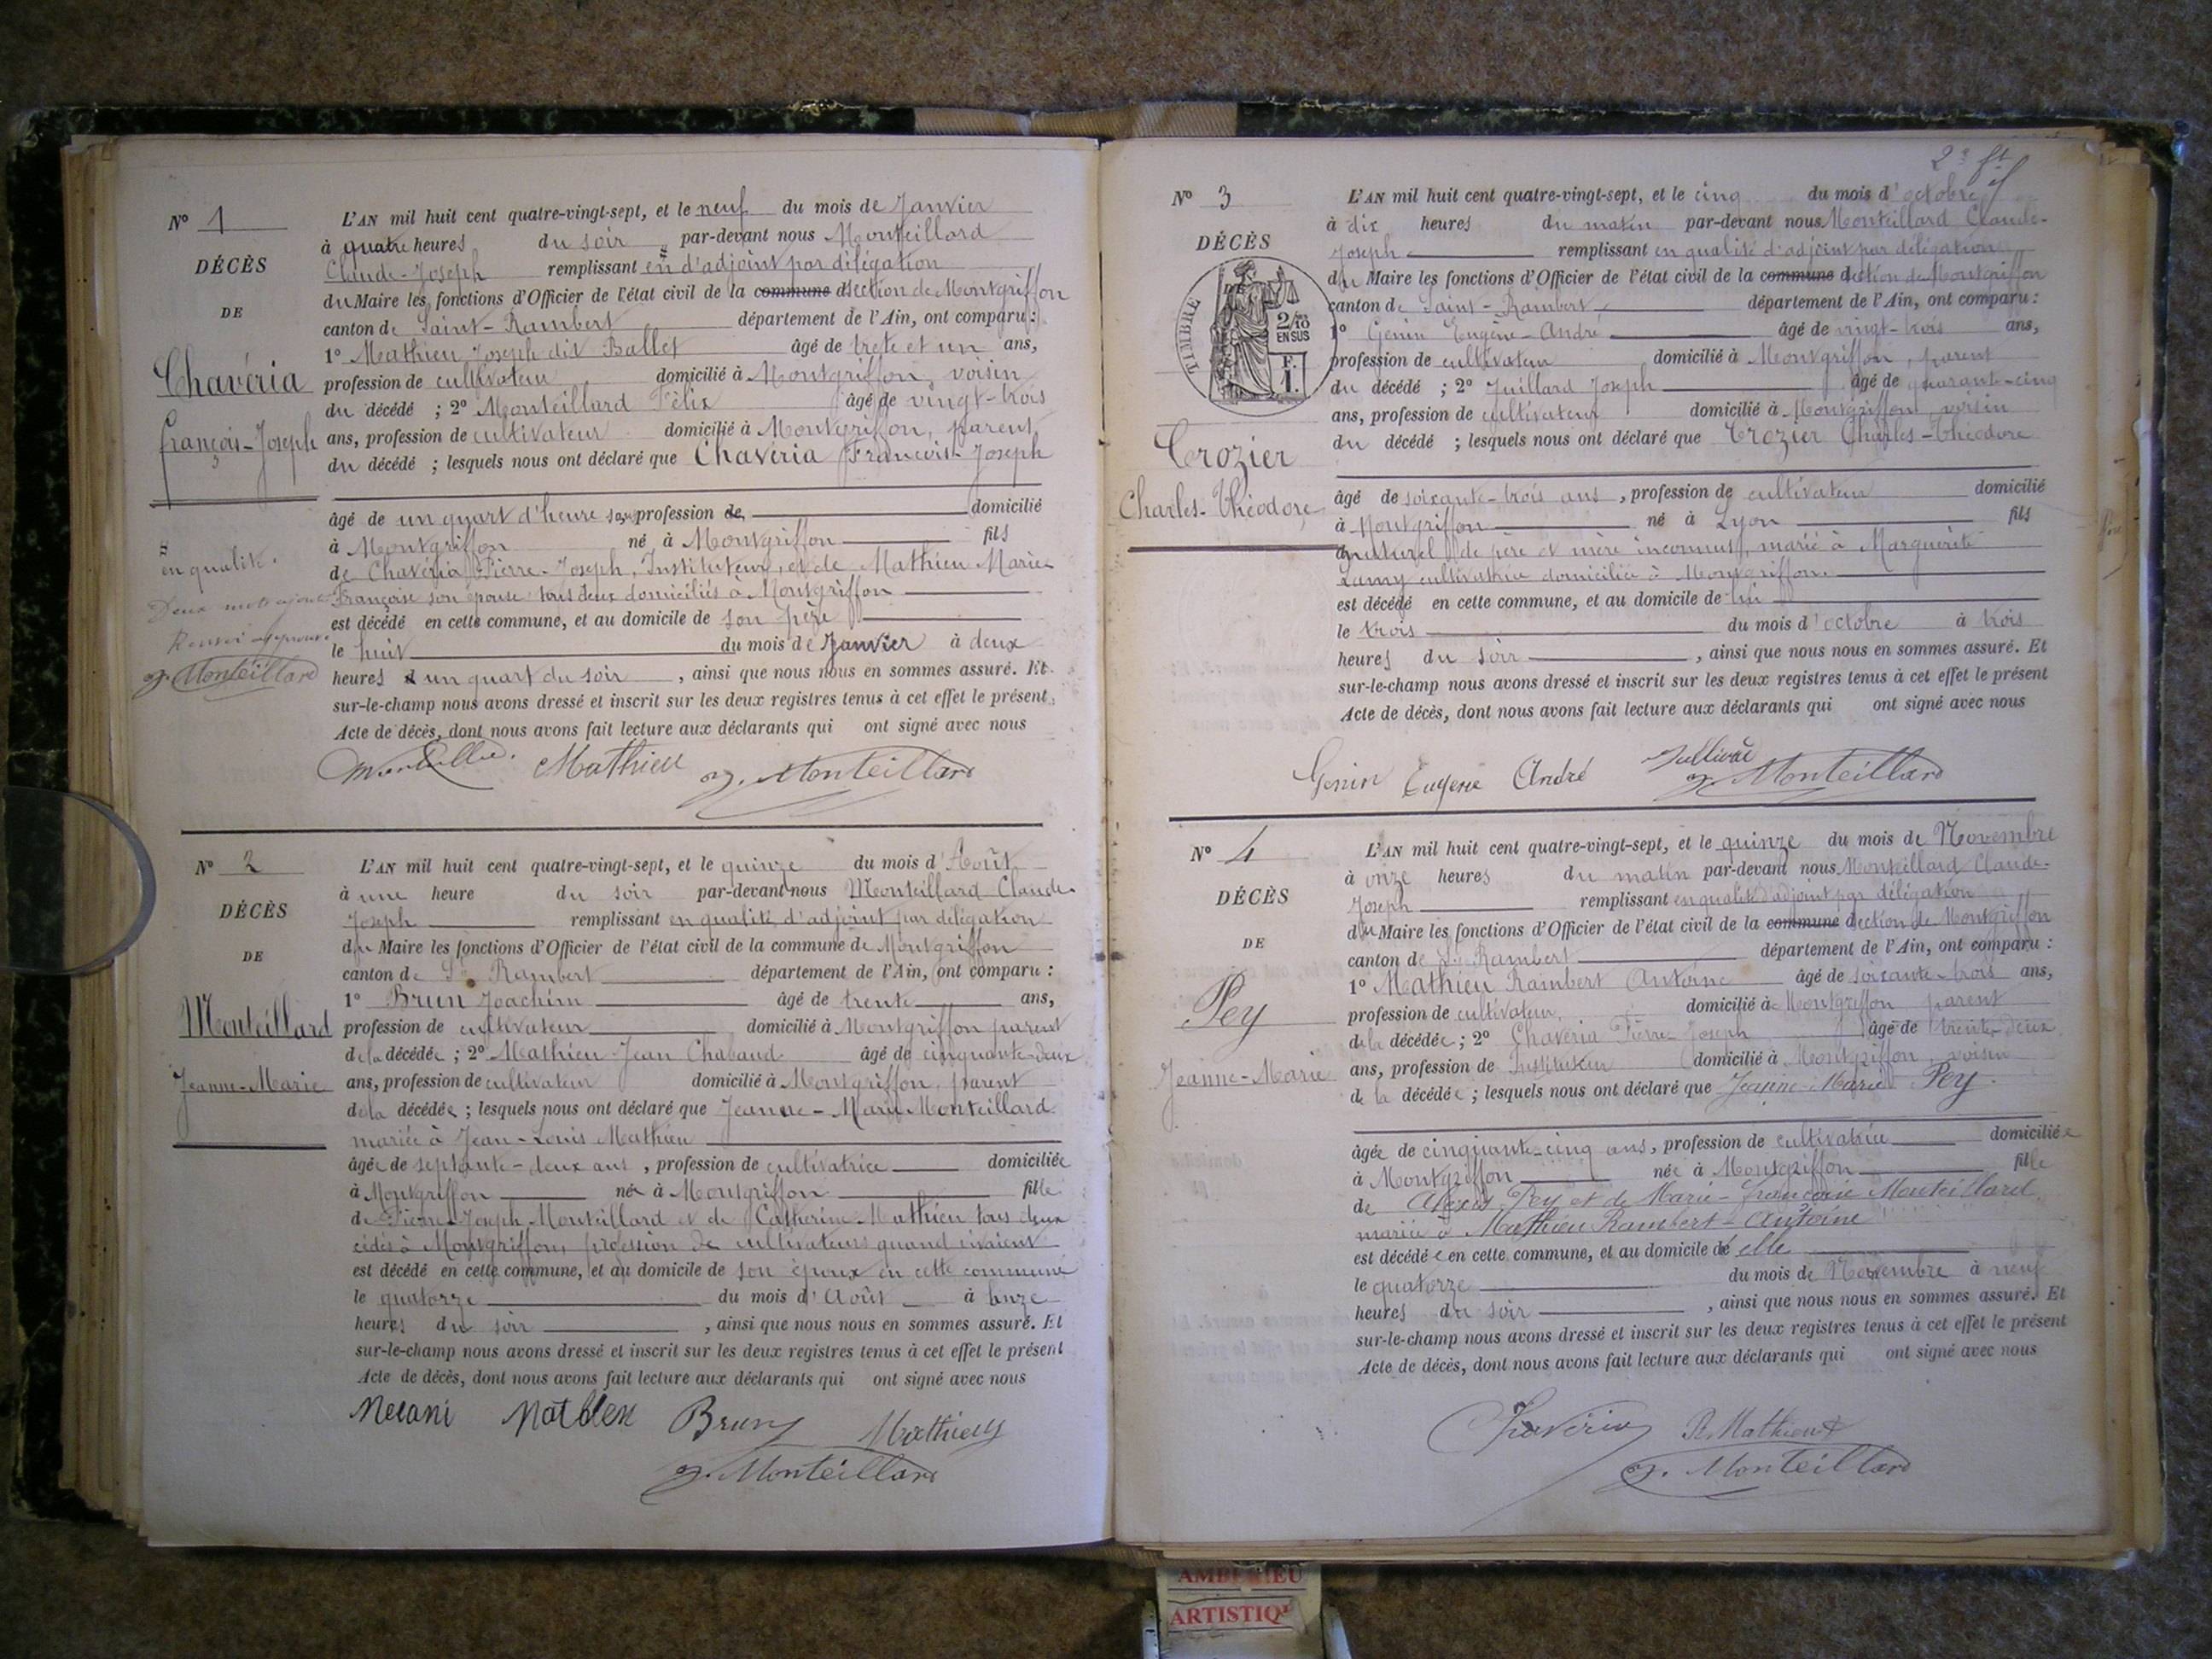 Nº 1
DÉCÈS
DE
Chavéria
François-Joseph
en qualité.
Deux mots ajoutés
Renvoi approuvé
J. Monteillard
L'AN mil huit cent quatre-vingt-sept, et le neuf du mois de Janvier
à quatre heures du soir par-devant nous Monteillard
Claude-Joseph remplissant en d'adjoint par délégation
du Maire les fonctions d'Officier de l'état civil de la commune dsection de Montgriffon
canton de Saint-Rambert département de l'Ain, ont comparu :
1º Mathieu Joseph dit Ballet âgé de trete et un ans,
profession de cultivateur domicilié à Montgriffon, voisin
du décédé ; 2º Monteillard Félix âgé de vingt-trois
ans, profession de cultivateur domicilié à Montgriffon, parent
du décédé ; lesquels nous ont déclaré que Chavéria François-Joseph
âgé de un quart d'heure sans profession de domicilié
à Montgriffon né à Montgriffon fils
de Chavéria Pierre-Joseph, Instituteur, et de Mathieu Marie
Françoise son épouse tous deux domiciliés à Montgriffon
est décédé en cette commune, et au domicile de son père
le huit du mois de Janvier à deux
heures un quart du soir , ainsi que nous nous en sommes assuré. Et
sur-le-champ nous avons dressé et inscrit sur les deux registres tenus à cet effet le présent
Acte de décès, dont nous avons fait lecture aux déclarants qui ont signé avec nous
Mathieu J. Monteillard
Nº 2
DÉCÈS
DE
Monteillard
Jeanne-Marie
L'AN mil huit cent quatre-vingt-sept, et le quinze du mois d'Août
à une heure du soir par-devant nous Monteillard Claude-
Joseph remplissant en qualité d'adjoint par délégation
du Maire les fonctions d'Officier de l'état civil de la commune de Montgriffon
canton de St Rambert département de l'Ain, ont comparu :
1º Brun Joachim âgé de trente ans,
profession de cultivateur domicilié à Montgriffon parent
de la décédée ; 2º Mathieu Jean Chabaud âgé de cinquante-deux
ans, profession de cultivateur domicilié à Montgriffon, parent
de la décédée ; lesquels nous ont déclaré que Jeanne-Marie Monteillard
mariée à Jean-Louis Mathieu
âgée de septante-deux ans , profession de cultivatrice domiciliée
à Montgriffon née à Montgriffon fille
de Pierre-Joseph Monteillard et de Catherine Mathieu tous deux
cédés à Montgriffon, profession de cultivateurs quand vivaient
est décédé en cette commune, et au domicile de son époux en cette commune
le quatorze du mois d'Août à onze
heures du soir , ainsi que nous nous en sommes assuré. Et
sur-le-champ nous avons dressé et inscrit sur les deux registres tenus à cet effet le présent
Acte de décès, dont nous avons fait lecture aux déclarants qui ont signé avec nous
Brun Mathieu
J. Monteillard
Nº 3
DÉCÈS
TIMBRE
2/10
EN SUS
F.
1.
Crozier
Charles-Théodore
L'AN mil huit cent quatre-vingt-sept, et le cinq du mois d'octobre
à dix heures du matin par-devant nous Monteillard Claude-
Joseph remplissant en qualité d'adjoint par délégation
du Maire les fonctions d'Officier de l'état civil de la commune dsection de Montgriffon
canton de Saint-Rambert département de l'Ain, ont comparu :
1º Genin Eugène-André âgé de vingt-trois ans,
profession de cultivateur domicilié à Montgriffon, parent
du décédé ; 2º Juillard Joseph âgé de quarant-cinq
ans, profession de cultivateur domicilié à Montgriffon, voisin
du décédé ; lesquels nous ont déclaré que Crozier Charles-Théodore
âgé de soixante-trois ans , profession de cultivateur domicilié
à Montgriffon né à Lyon fils
naturel de père et mère inconnus, marié à Marguerite
Lamy cultivatrice domiciliée à Montgriffon.
est décédé en cette commune, et au domicile de lui
le trois du mois d'octobre à trois
heures du soir , ainsi que nous nous en sommes assuré. Et
sur-le-champ nous avons dressé et inscrit sur les deux registres tenus à cet effet le présent
Acte de décès, dont nous avons fait lecture aux déclarants qui ont signé avec nous
Genin Eugene André
J. Monteillard
Nº 4
DÉCÈS
DE
Pey
Jeanne-Marie
L'AN mil huit cent quatre-vingt-sept, et le quinze du mois de Novembre
à onze heures du matin par-devant nous Monteillard Claude-
Joseph remplissant en qualité d'adjoint par délégation
du Maire les fonctions d'Officier de l'état civil de la commune dsection de Montgriffon
canton de St Rambert département de l'Ain, ont comparu :
1º Mathieu Rambert Antoine âgé de soixante-trois ans,
profession de cultivateur, domicilié à Montgriffon parent
de la décédée ; 2º Chavéria Pierre Joseph âgé de trente-deux
ans, profession de Instituteur domicilié à Montgriffon, voisin
de la décédée ; lesquels nous ont déclaré que Jeanne-Marie Pey.
âgée de cinquante-cinq ans, profession de cultivatrice domiciliée
à Montgriffon née à Montgriffon fille
de Alexis Pey et de Marie-Françoise Monteillard,
mariée à Mathieu Rambert-Antoine
est décédée en cette commune, et au domicile de elle
le quatorze du mois de Novembre à neuf
heures du soir , ainsi que nous nous en sommes assuré. Et
sur-le-champ nous avons dressé et inscrit sur les deux registres tenus à cet effet le présent
Acte de décès, dont nous avons fait lecture aux déclarants qui ont signé avec nous
Chavéria R. Mathieu
J. Monteillard
AMBERIEU
ARTISTIQ